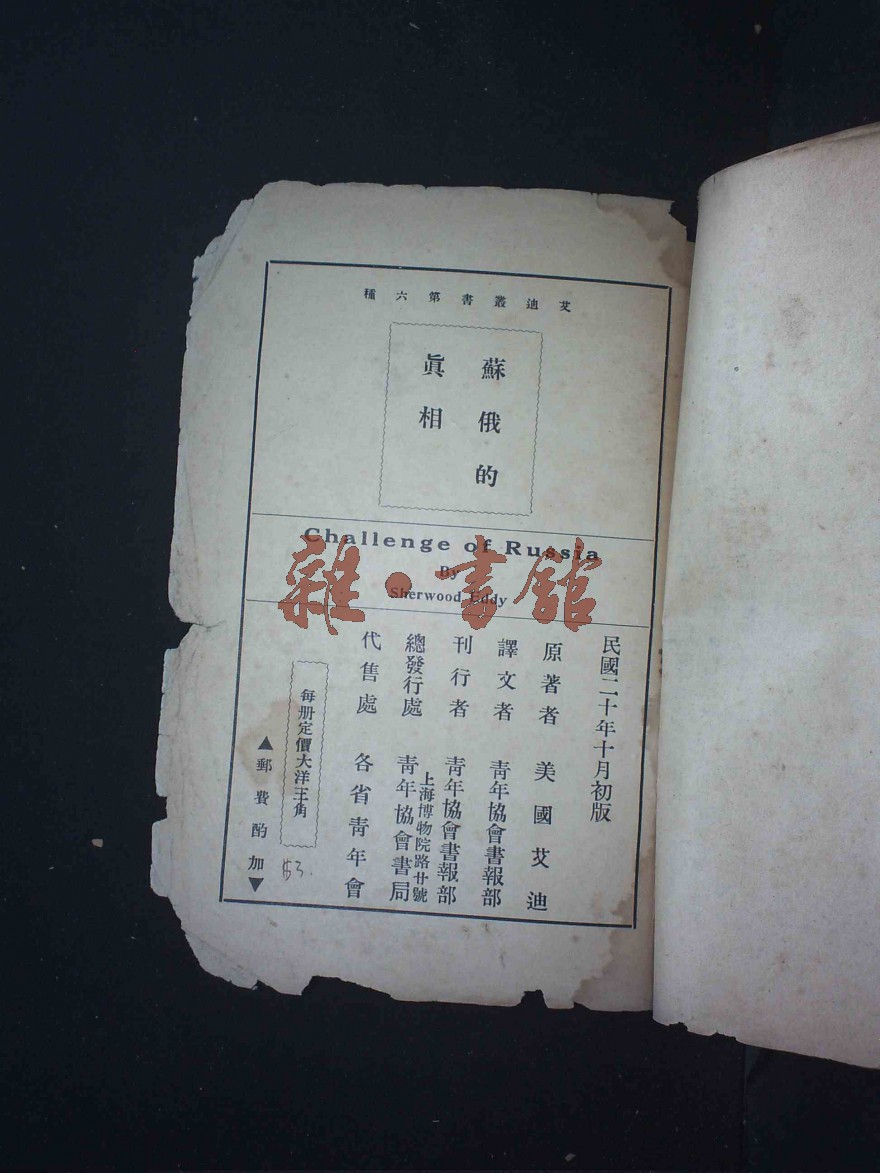 艾迪叢書第六種
蘇俄的
眞相
Challenge of Russia
By
Sherwood Eddy
雜·書館
民國二十年十月初版
原著者 美國艾迪
譯文者 青年協會書報部
刊行者 青年協會書報部
上海博物院路廿號
總發行處 青年協會書局
代售處 各省青年會
每册定價大洋王角
▲郵費酌加▼